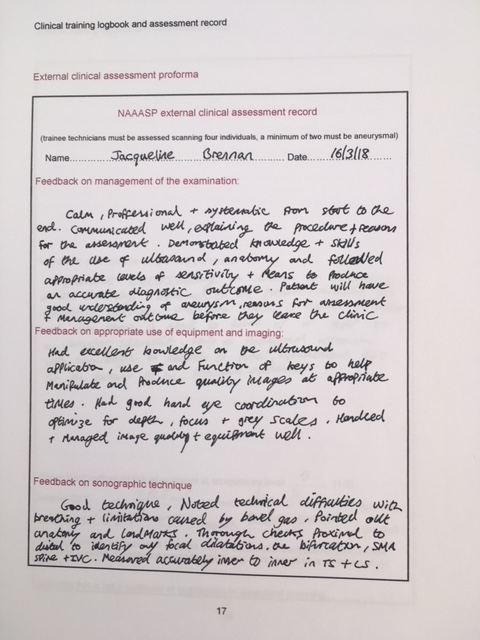 Clinical training logbook and assessment record
External clinical assessment proforma
NAAASP external clinical assessment record
(trainee technicians must be assessed scanning four individuals, a minimum of two must be aneurysmal)
Name.....Jacqueline Brennan.....Date.....16/3/18.....
Feedback on management of the examination:
Calm, Proffessional + systematic from start to the
end. Communicated well, explaining the procedure + reasons
for the assessment. Demonstrated knowledge + skills
of the use of ultrasound, anatomy and followed
appropriate levels of sensitivity + means to produce
an accurate diagnostic outcome. Patient will have
good understanding of aneurysm, reasons for assessment
+ Management outcome before they leave the clinic
Feedback on appropriate use of equipment and imaging:
Had excellent knowledge on the ultrasound
application, use and Function of keys to help
Manipulate and Produce quality images at appropriate
times. Had good hand eye coordination to
optimize for depth, focus + grey scales. Handled
+ Managed image quality + equipment well.
Feedback on sonographic technique
Good technique, Noted technical difficulties with
breathing + limitations caused by bowel gas. Pointed out
anatomy and landmarks. Thorough checks Proximal to
distal to identify any focal dilatations, the bifurcation, SMA
spine + IVC. Measured accurately inner to inner in TS + LS.
17